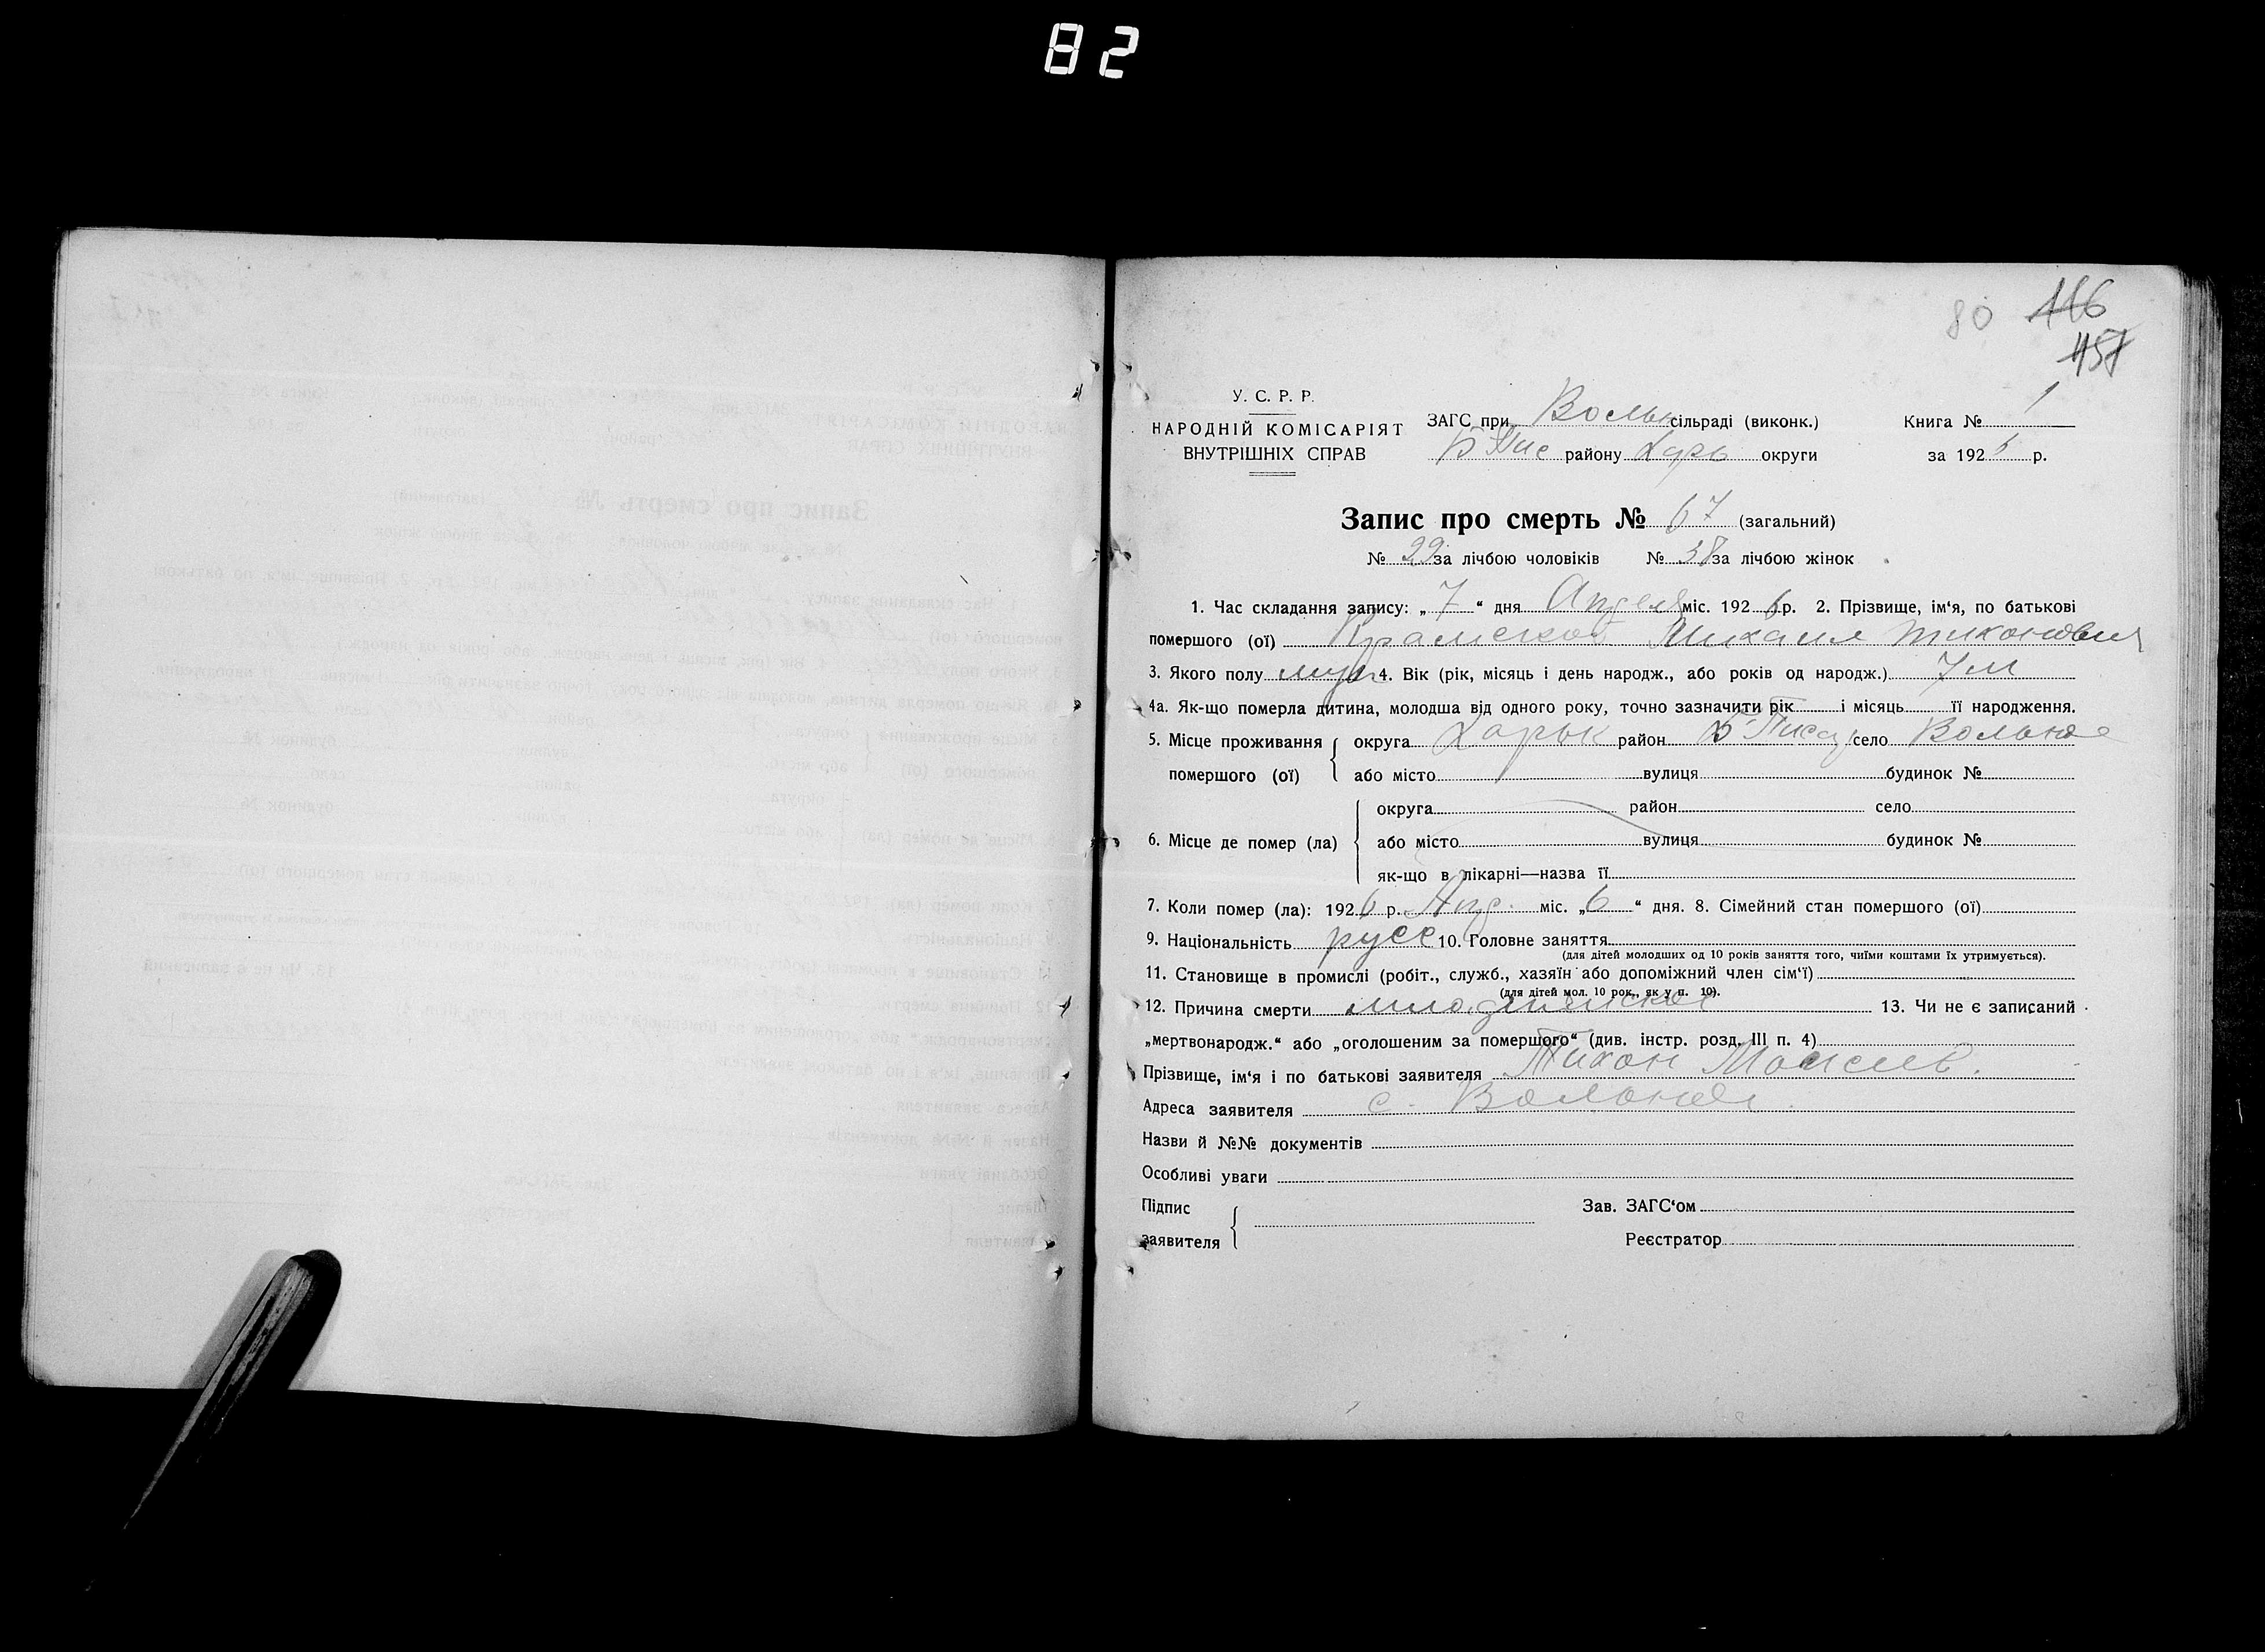 82
80 116
157
У. С. Р. Р.
НАРОДНІЙ КОМІСАРІЯТ
ВНУТРІШНІХ СПРАВ
ЗАГС при Вольн сільраді (виконк.) Книга № 1
Б Пис району Харь округи за 1926 р.
Запис про смерть № 67 (загальний)
№ 29 за лічбою чоловіків № 38 за лічбою жінок
1. Час складання запису: „ 7 “ дня Апреля міс. 1926 р. 2. Прізвище, ім‘я, по батькові
помершого (ої) Крамской Михаил Тихонович
3. Якого полу муж 4. Вік (рік, місяць і день народж., або років од народж.) 7 м
4а. Як-що померла дитина, молодша від одного року, точно зазначити рік і місяць її народження.
5. Місце проживання помершого (ої) { округа Харьк район Б Писар село Вольное
або місто вулиця будинок №
6. Місце де помер (ла) { округа район село
або місто вулиця будинок №
як-що в лікарні—назва її
7. Коли помер (ла): 1926 р. Апр. міс. „ 6 “ дня. 8. Сімейний стан помершого (ої)
9. Національність русс 10. Головне заняття
(для дітей молодших од 10 років заняття того, чиїми коштами їх утримується).
11. Становище в промислі (робіт., служб., хазяїн або допоміжний член сім‘ї)
(для дітей мол. 10 рок., як у п. 10).
12. Причина смерти младенческая 13. Чи не є записаний
„мертвонародж.“ або „оголошеним за помершого“ (див. інстр. розд. III п. 4)
Прізвище, ім‘я і по батькові заявителя Тихон Моисеев.
Адреса заявителя с. Вольное
Назви й №№ документів
Особливі уваги
Підпис заявителя { Зав. ЗАГС‘ом
Реєстратор